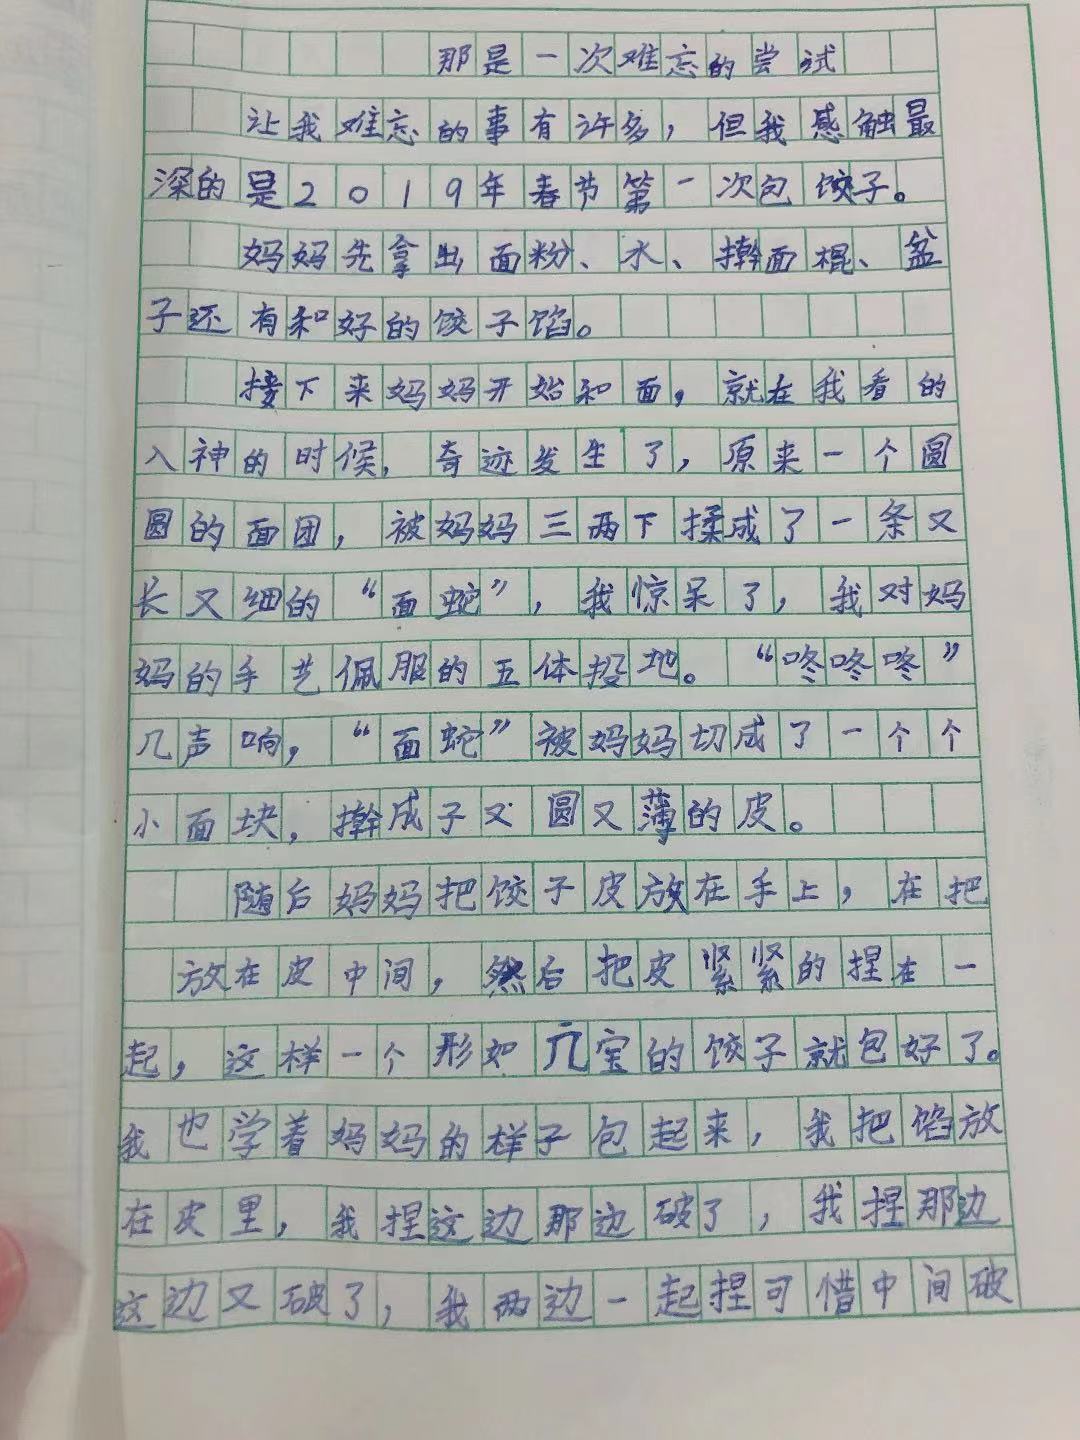 那是一次难忘的尝试
让我难忘的事有许多，但我感触最
深的是2019年春节第一次包饺子。
妈妈先拿出面粉、水、擀面棍、盆
子还有和好的饺子馅。
接下来妈妈开始和面，就在我看的
入神的时候，奇迹发生了，原来一个圆
圆的面团，被妈妈三两下揉成了一条又
长又细的“面蛇”，我惊呆了，我对妈
妈的手艺佩服的五体投地。“咚咚咚”
几声响，“面蛇”被妈妈切成了一个个
小面块，擀成子又圆又薄的皮。
随后妈妈把饺子皮放在手上，在把
放在皮中间，然后把皮紧紧的捏在一
起，这样一个形如元宝的饺子就包好了。
我也学着妈妈的样子包起来，我把馅放
在皮里，我捏这边那边破了，我捏那边
这边又破了，我两边一起捏可惜中间破